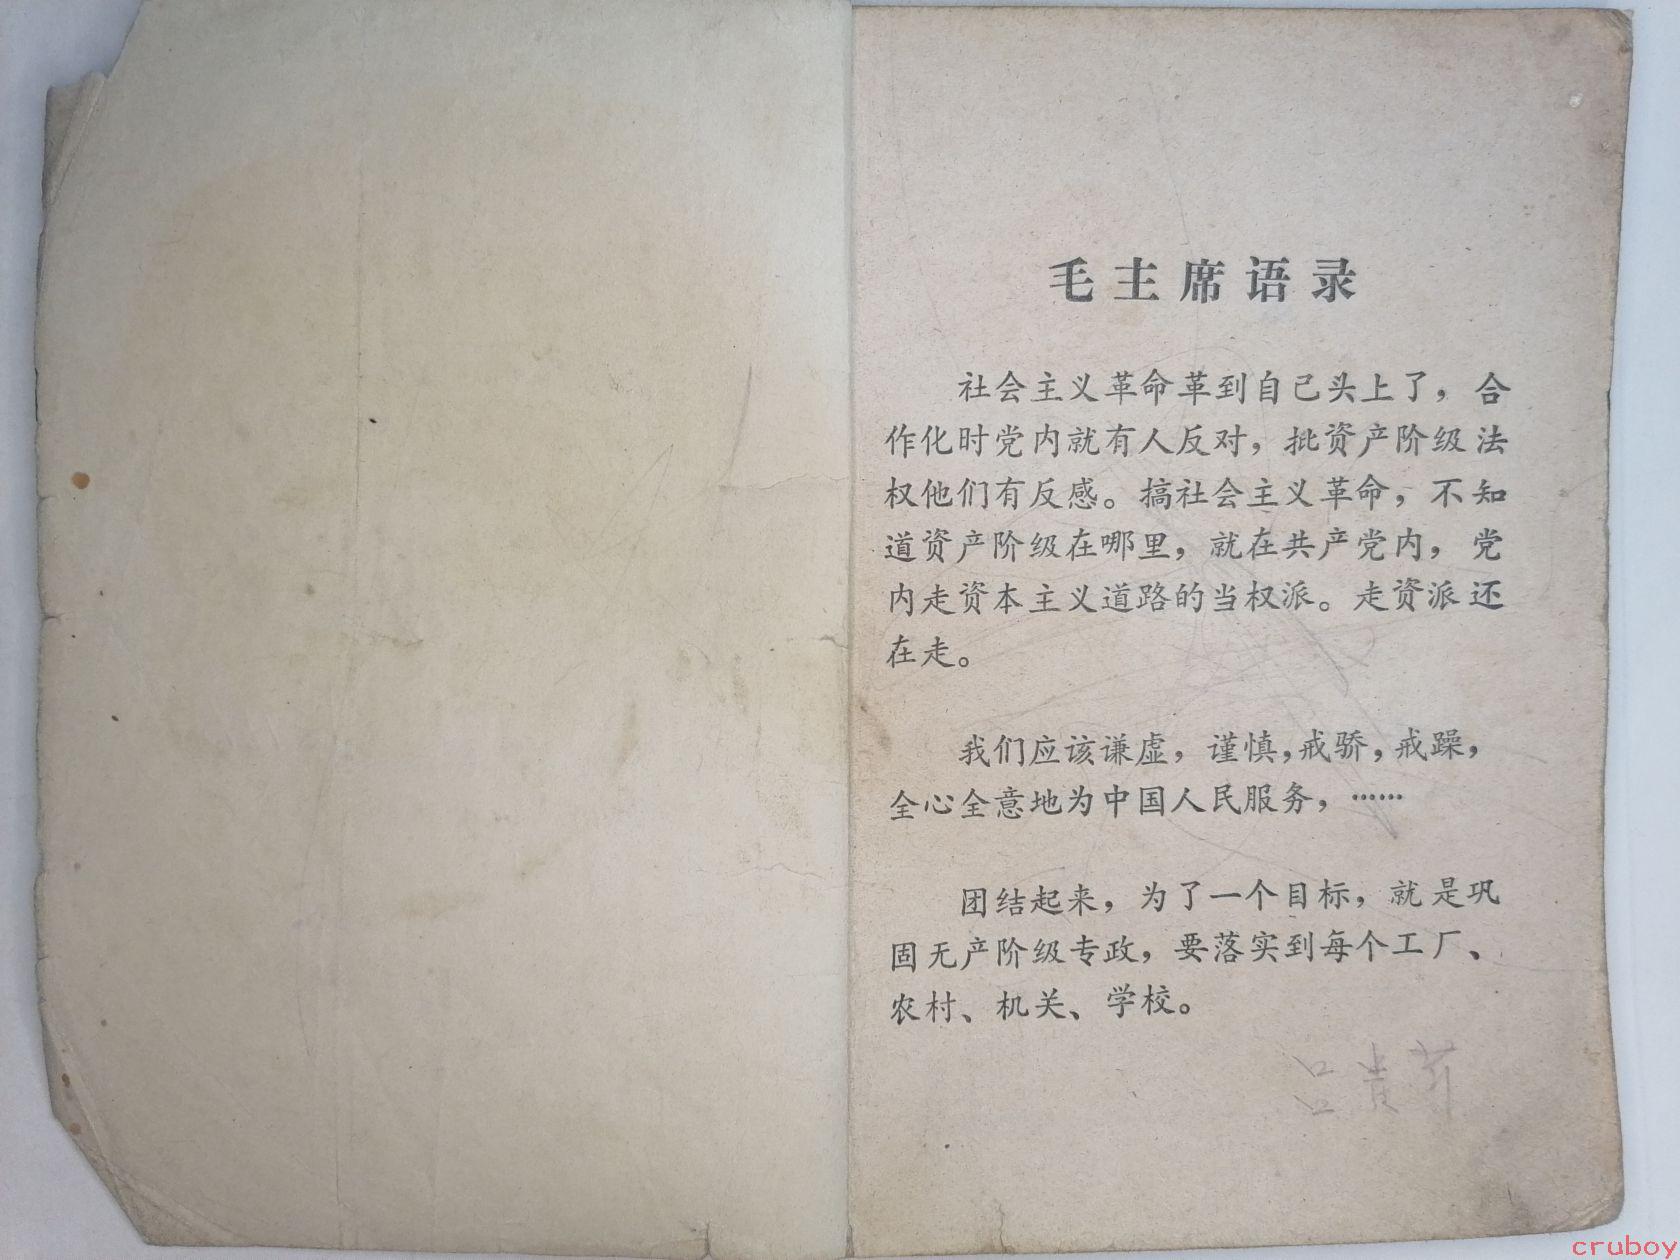 毛主席语录
社会主义革命革到自己头上了，合
作化时党内就有人反对，批资产阶级法
权他们有反感。搞社会主义革命，不知
道资产阶级在哪里，就在共产党内，党
内走资本主义道路的当权派。走资派还
在走。
我们应该谦虚，谨慎，戒骄，戒躁，
全心全意地为中国人民服务，……
团结起来，为了一个目标，就是巩
固无产阶级专政，要落实到每个工厂、
农村、机关、学校。
cruboy